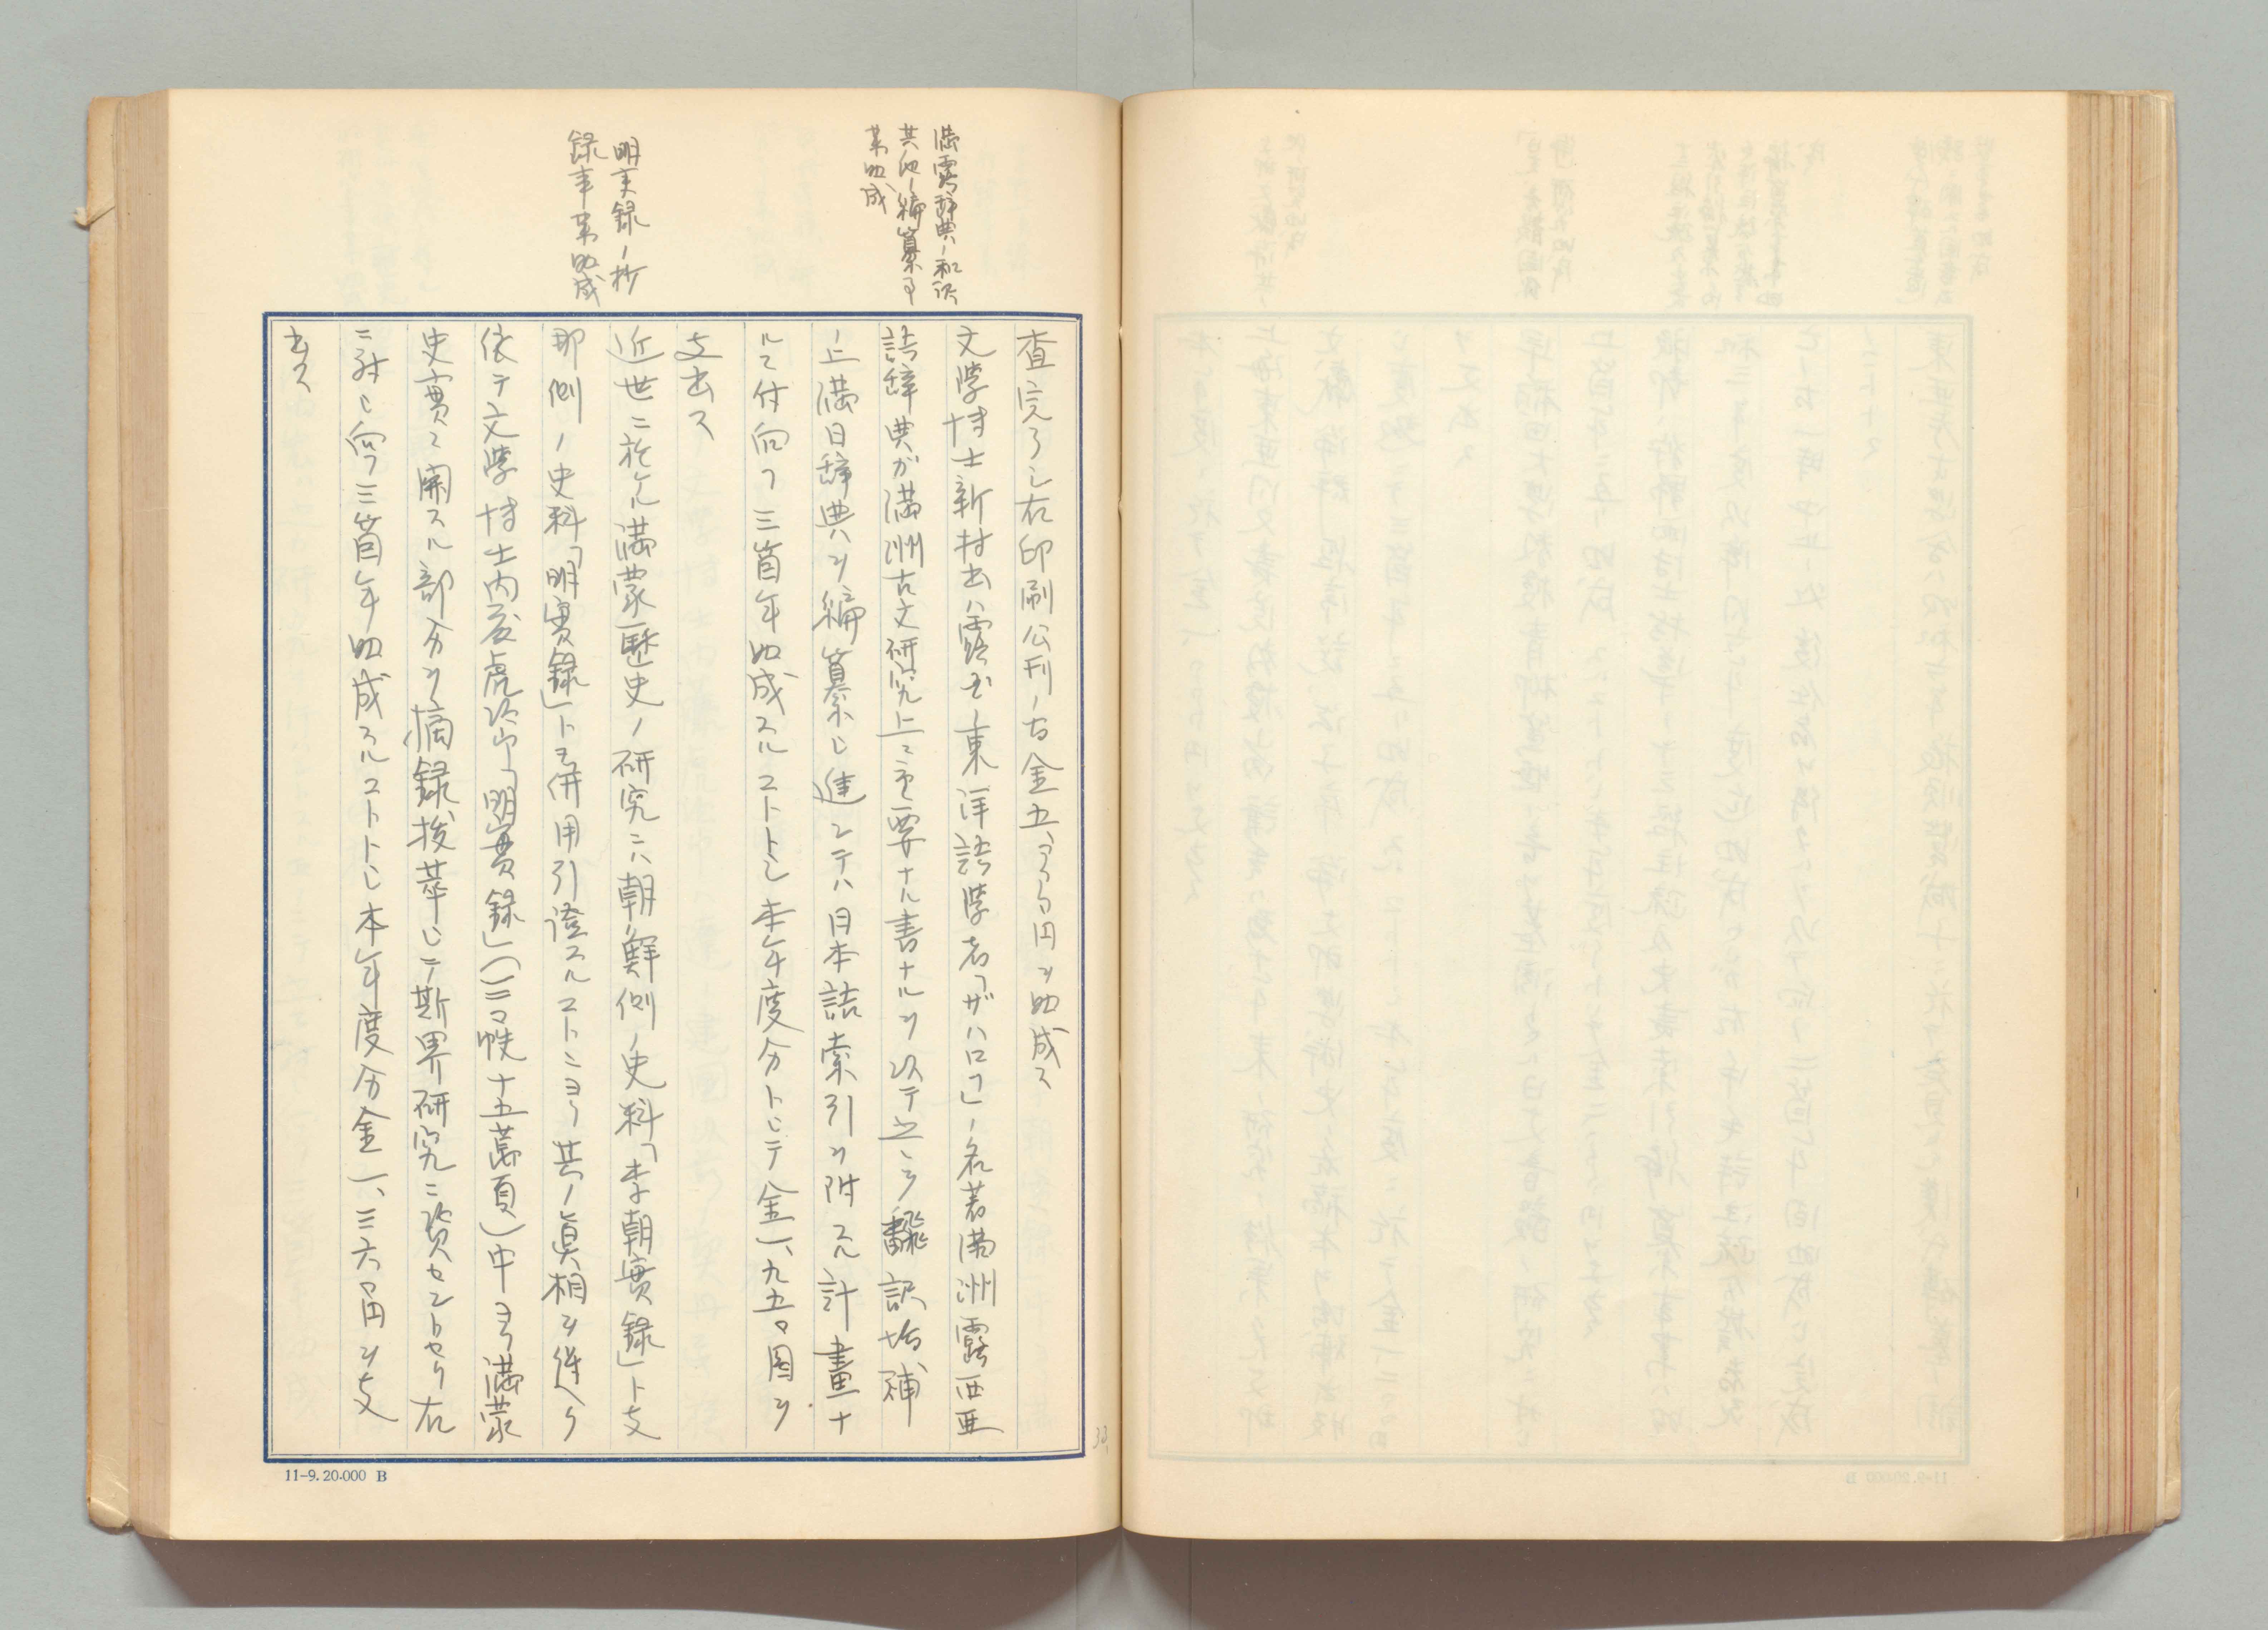 満露辞典ノ和訳
其他ノ編纂事
業助成
明実録ノ抄
録事業助成
査完了シ右印刷公刊ノ為金五、〇〇〇円ヲ助成ス
文學博士新村出ハ露国ノ東洋語學者「ザハロフ」ノ名著満洲露西亜
語辞典ガ満洲古文研究上ニ重要ナル書ナルヲ以テ之ヲ飜訳増補
ノ上満日辞典ヲ編纂シ進ンデハ日本語索引ヲ附スル計畫ナ
ルニ付向フ三箇年助成スルコトトシ本年度分トシテ金一、九五〇圓ヲ
支出ス
近世ニ於ケル満蒙歴史ノ研究ニハ朝鮮側ノ史料「李朝實録」ト支
那側ノ史料「明實録」トヲ併用引證スルコトニヨリ其ノ眞相ヲ得ベク
依テ文學博士内藤虎次郎ハ「明實録」(三〇帙十五萬頁)中ヨリ満蒙
史實ニ関スル部分ヲ摘録拔萃シテ斯界研究ニ資セントセリ右
ニ対シ向フ三箇年助成スルコトトシ本年度分金一、三六〇円ヲ支
出ス
11-9. 20.000 B